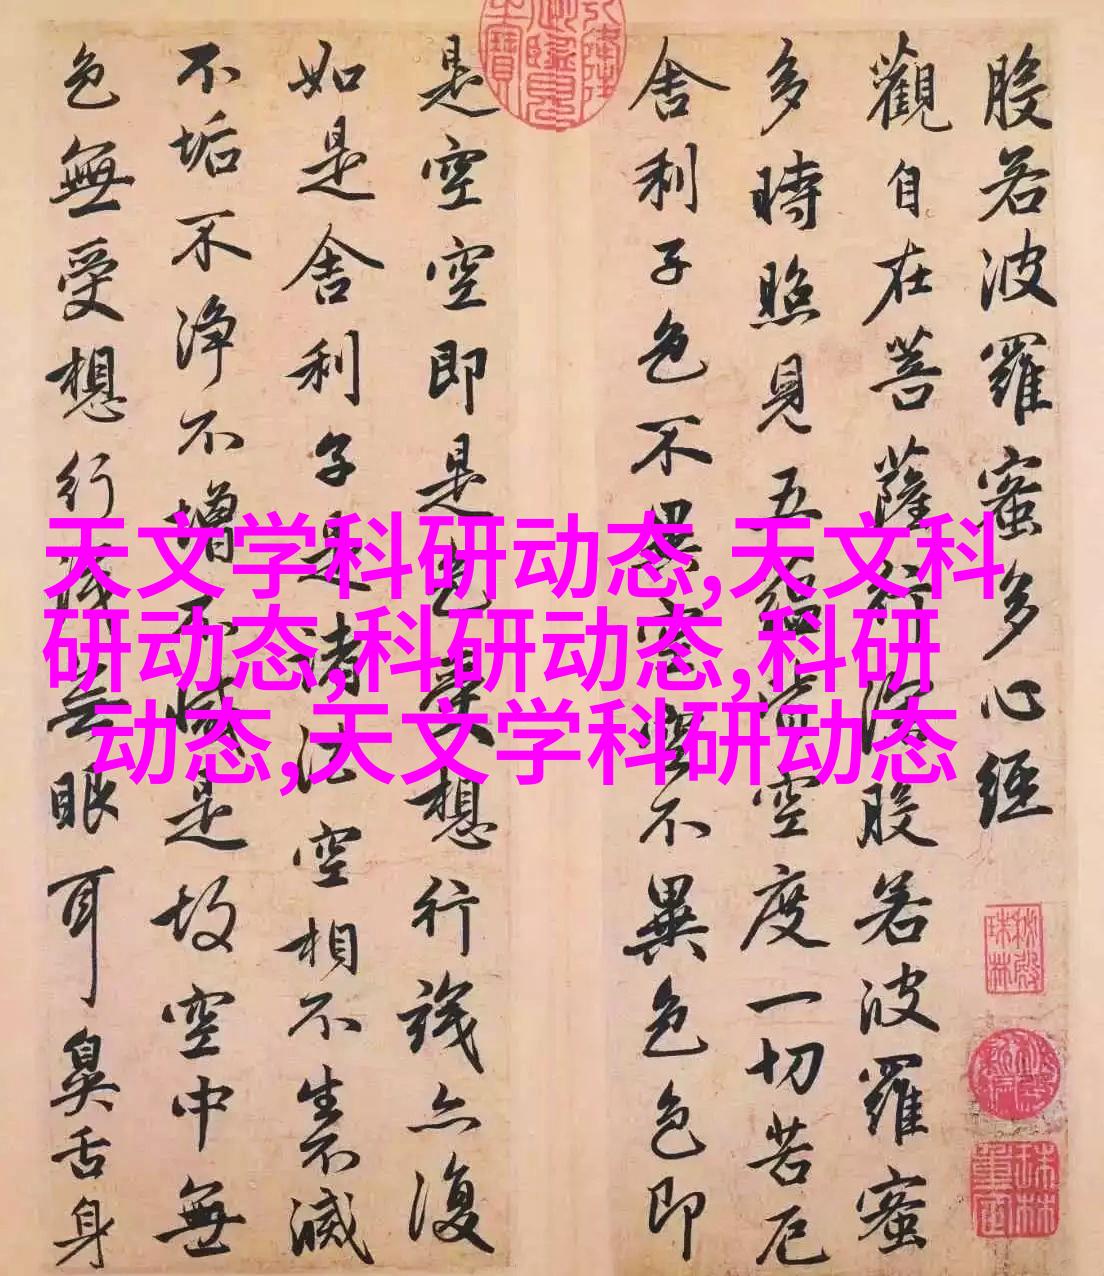 般若波羅蜜多心經
觀自在菩薩行深般若波羅蜜
多時照見五蘊皆空度一切苦厄
舍利子色不異空空不異色色即
是空空即是色受想行識亦復
如是舍利子是諸法空相不生不滅
不垢不淨不增不減是故空中無
色無受想行識无眼耳鼻舌身
天文学科研动态,天文科
研动态,科研动态,科研
动态,天文学科研动态
秘殿
珠林